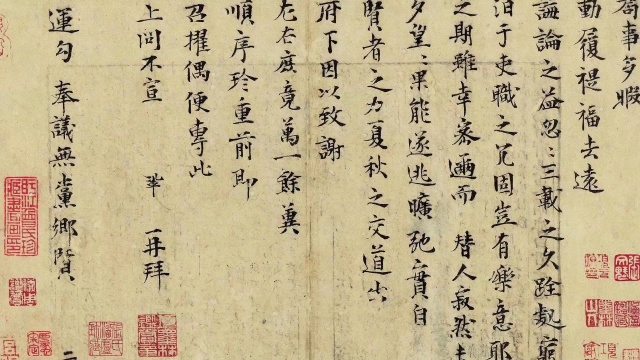 局事多暇
動履禔福去遠
誨論之益忽〻三載之久跧處窮
汨于吏職之冗固豈有樂意耶
之期雖幸密邇而替人寂然
夕望〻果能遂逃曠弛實自
賢者之力夏秋之交道出
府下因以致謝
左右庶竟萬一餘冀
順序珍重前即
召擢偶便專此
上問不宣 鞏 再拜
運勾 奉議無黨鄉賢 二